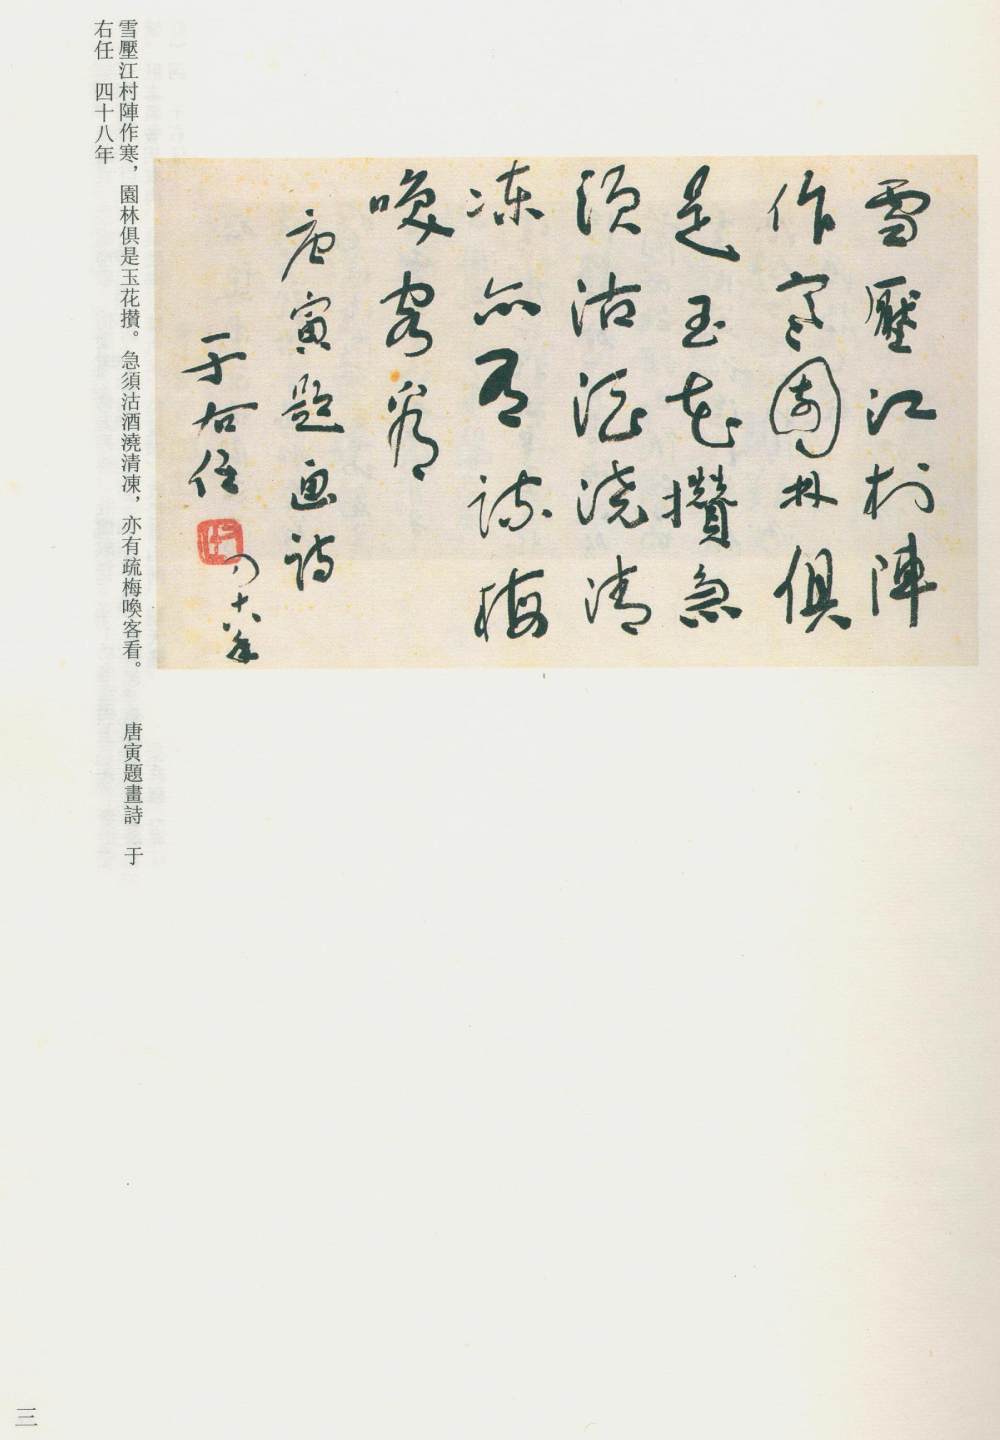 雪壓江村陣
作寒園林俱
是玉花攢急
須沽酒澆清
凍亦有疏梅
喚客看
唐寅題画詩
于右任
四十八年
雪壓江村陣作寒，園林俱是玉花攢。急須沽酒澆清凍，亦有疏梅喚客看。　唐寅題畫詩　于
右任　四十八年
三